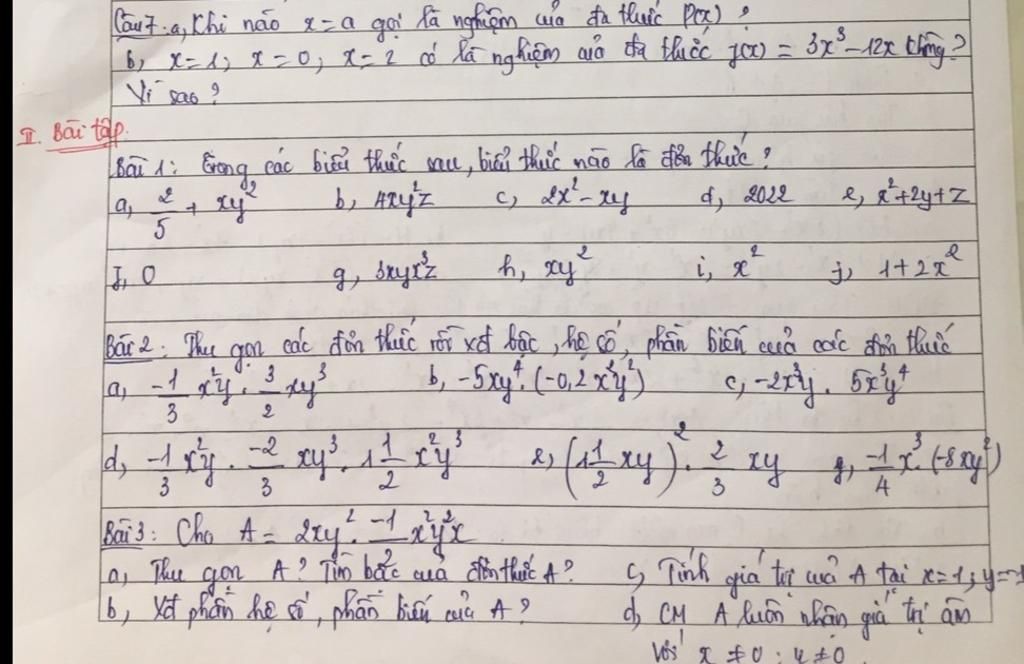 Câu 7. a, Khi nào x = a gọi là nghiệm của đa thức P(x) ?
b, x = 1; x = 0; x = 2 có là nghiệm của đa thức f(x) = 3x³ - 12x không ?
Vì sao ?
II. Bài tập.
Bài 1: Trong các biểu thức sau, biểu thức nào là đơn thức ?
a, 2/5 + xy² b, 4xy²z c, 2x² - xy d, 2022 e, x² + 2y + z
f, 0 g, 3xyx³z h, xy² i, x² j, 1 + 2x²
Bài 2: Thu gọn các đơn thức rồi xđ bậc, hệ số, phần biến của các đơn thức
a, -1/3 x²y . 3/2 xy³ b, -5xy⁴. (-0,2x²y²) c, -2x³y . 5x³y⁴
d, -1/3 x²y . -2/3 xy³ . 1 1/2 x²y³ e, (1 1/2 xy)² . 2/3 xy g, -1/4 x³. (-8xy²)
Bài 3: Cho A = 2xy² . -1/ x²y²x
a, Thu gọn A ? Tìm bậc của đơn thức A ? c, Tính giá trị của A tại x = 1; y = -1
b, Xđ phần hệ số, phần biến của A ? d, CM A luôn nhận giá trị âm
với x ≠ 0 ; y ≠ 0